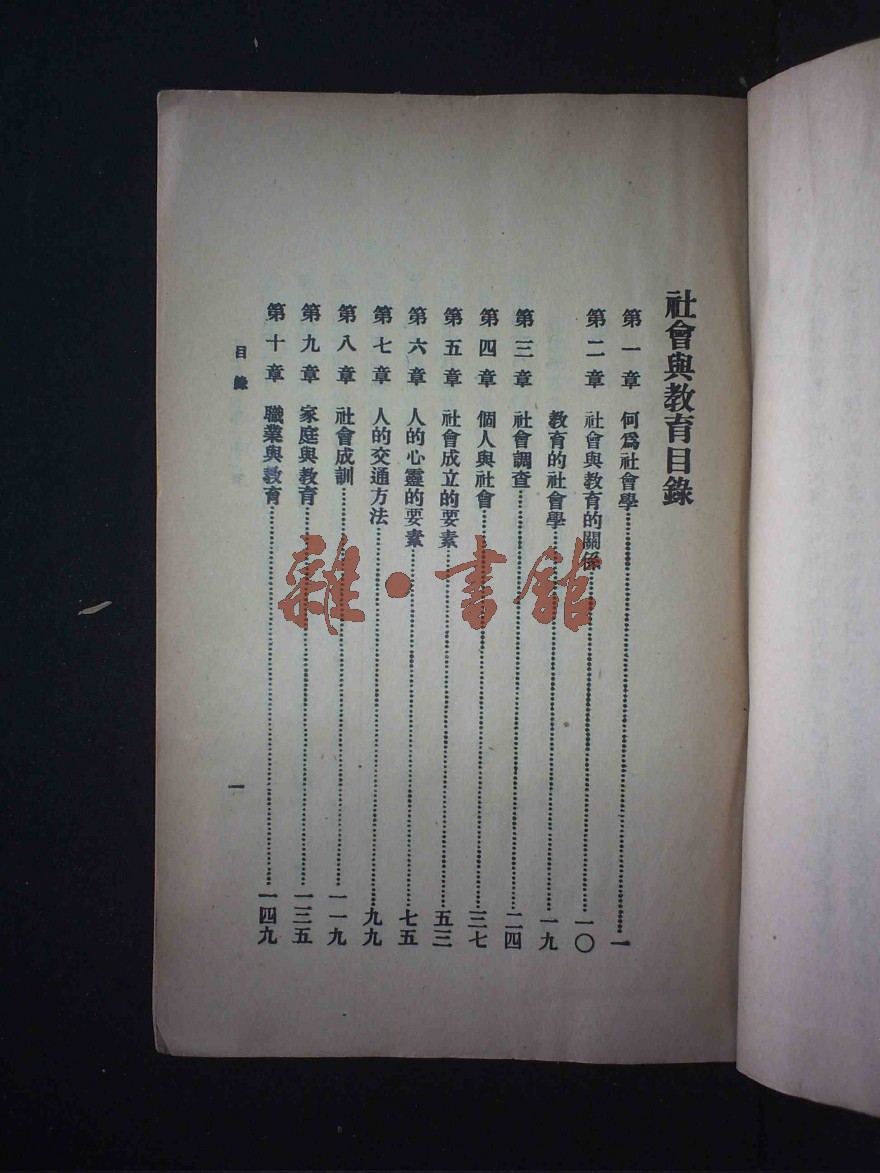 社會與教育目錄
第一章 何爲社會學……一
第二章 社會與教育的關係……一〇
教育的社會學……一九
第三章 社會調查……二四
第四章 個人與社會……三七
第五章 社會成立的要素……五三
第六章 人的心靈的要素……七五
第七章 人的交通方法……九九
第八章 社會成訓……一一九
第九章 家庭與教育……一三五
第十章 職業與教育……一四九
目錄
一
雜·書館